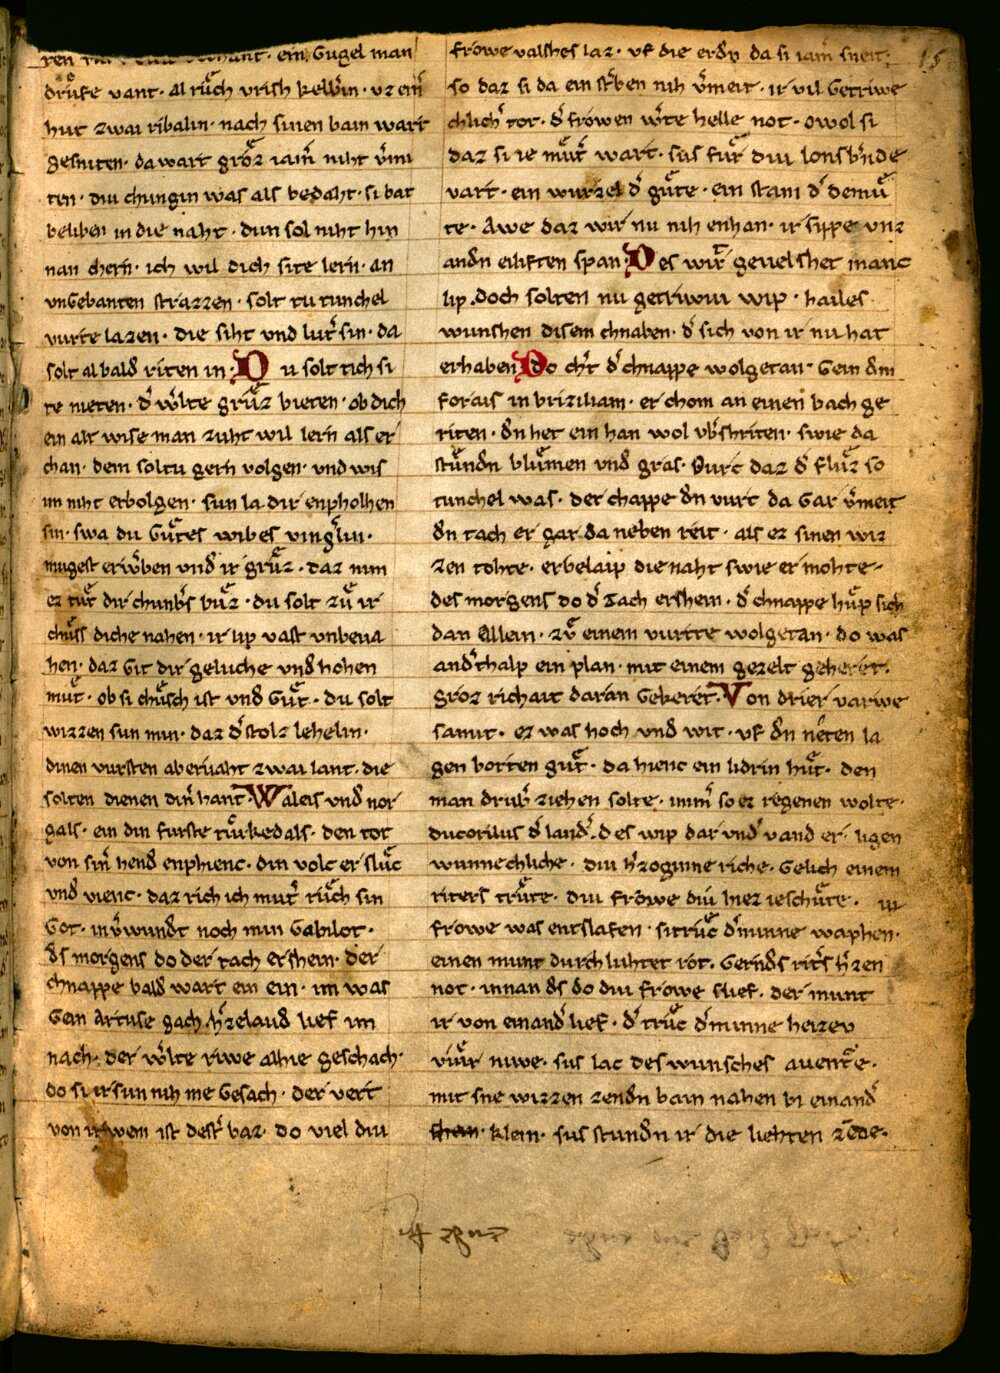 ein Gugel man
drůfe vant · al růch vrish kelb̕in · vz ein̄
hut zwai ribalin · nach sinen bain wart
gesniten · da wart groz iam̄ niht v̕mi
ten · diu chungin was als bedaht · si bat
beliben in die naht · dun sol niht hin
nan chern̄ · ich wil dich site lern̄ · an
vnGebanten strazzen · solt tu tunchel
vurte lazen · die siht vnd lut̕ sin · da
solt al bald̄ riten in · Du solt tich si
te nieten · d̕ w̕lte grůz bieten · ob dich
ein alt wise man zuht wil lern als er
chan · dem soltu gern volgen · vnd wis
im niht erbolgen · sun la dir enpholhen
sin · swa du Gůtes wibes vingl̕in ·
mugest erw̕ben vnd̄ ir grůz · daz nim
ez tůt dir chunb̕s bůz · du solt zů ir
chůss diche nahen · ir lip vast vnbeua
hen · daz Git dir geluche vnd̄ hohen
můt · ob si chůsch ist vnd̄ Gůt · du solt
wizzen sun min · daz d̕ stolz lehelin ·
dinen vursten abervaht zwai lant · die
solten dienen din̄ hant · Waleis vnd̄ nor
gals · ein din furste tůrkedals · den tot
von sin̄ hend̄ enphienc · din volc er slůc
vnd̄ vienc · daz rich ich mut̕ růch sin
Got · mi v̕wund̄t noch min Gabilot ·
d̄s morgens do der tach ershein · der
chnappe bald̄ wart ein ein · im was
Gein Artuse gach · h̕zelaud̄ lief im
nach · der w̕lte riwe alhie geschach ·
do si ir sun nih me Gesach · der vert
von ir wem ist dest̕ baz · do viel diu
frŏwe valshes laz · vf die erd̄n da si iam̄ sneit ·
so daz si da ein st̕ben nih v̕meit · ir vil Getriwe
chlich̕ tot · d̕ frŏwen w̕te helle not · owol si
daz si ie můt̕ wart · sus fůr diu lonsb̕nde
vart · ein wurzel d̕ gůte · ein stam d̕ demů
te · Awe daz wir nu nih enhan · ir sippe vnz
and̄n eiliften span · Des wir̄t geuelshet manc
lip · doch solten nu getriwiu wip · hailes
wunshen disem chnaben · d̕ sich von ir nu hat
erhaben · Do ch̕t d̕ chnappe wolgetan · Gein d̄m
forais in briziliam · er chom an einen bach ge
riten · d̄n het ein han wol vb̕shriten · swie da
stůnd̄n blůmen vnd̄ gras · Durc daz d̕ flůz so
tunchel was · der chappe d̄n vurt da Gar v̕meit
d̄n tach er gar da neben reit · als ez sinen wiz
zen tohte · er belaip die naht swie er mohte ·
des morgens do d̕ Tach ershein · d̕ chnappe hůp sich
dan Ellein · zů einem vurtte wolgetan · do was
and̕thalp ein plan · mit einem gezelt geheret ·
Groz richait daran Gekeret · Von drier varwe
samit · ez was hoch vnd̄ wit · vf d̄n næten la
gen borten gůt · da hienc ein lidrin hůt · den
man drub̕ ziehen solte · imm̄ so ez regenen wolte ·
ducorilus d̕ land̕ · des wip dar vnd̕ vand er · ligen
wunnechliche · diu h̕zoginne riche · Gelich einem
riters trůte · diu frŏwe diu hiez ieschůte · diu
frowe was entslafen · si trůc d̕ minne waphen ·
einen munt durchluhtet rot · Gernd̄s rit̕s h̕zen
not · innan d̄s do diu frowe slief · der munt
ir von einand̕ lief · d̕ trůc d̕ minne heizev
viůr niwe · sus lac des wunsches auent̕e ·
mit sne wizzen zend̄n bain nahen bi einand̕
klein · sus stund̄n ir die liehten zede ·
15